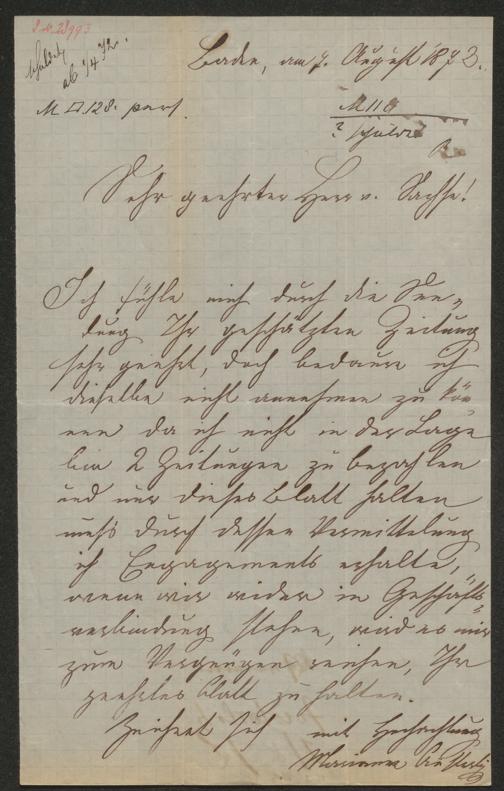 Baden, am 7. August 1873.
ab 1/4 72.
M 128. part.
M 118
? schuldet
Sehr geehrter Herr v. Sachse!
Ich fühle mich durch die Sen-
dung Ihr geschätzten Zeitung
sehr geehrt, doch bedaure ich
dieselbe nicht annehmen zu kön
nen da ich nicht in der Lage
bin 2 Zeitungen zu bezahlen
und nur dieses Blatt halten
muß durch dessen Vermittelung
ich Engagements erhalte,
wenn wir wider in Geschäfts-
verbindung stehen, wird es mir
zum Vergnügen reichen, Ihr
geehrtes Blatt zu halten.
Zeichnet sich mit Hochachtung
Marianne